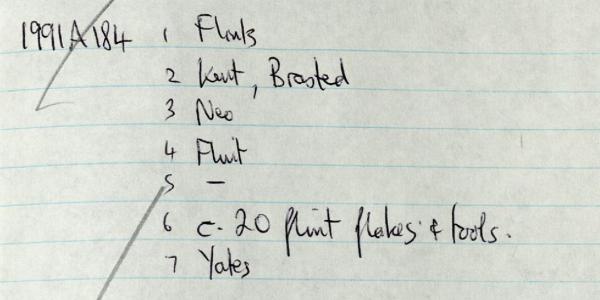 1991A184 1 Flints
2 Kent, Brasted
3 Neo
4 Flint
5 –
6 c. 20 flint flakes & tools.
7 Yates